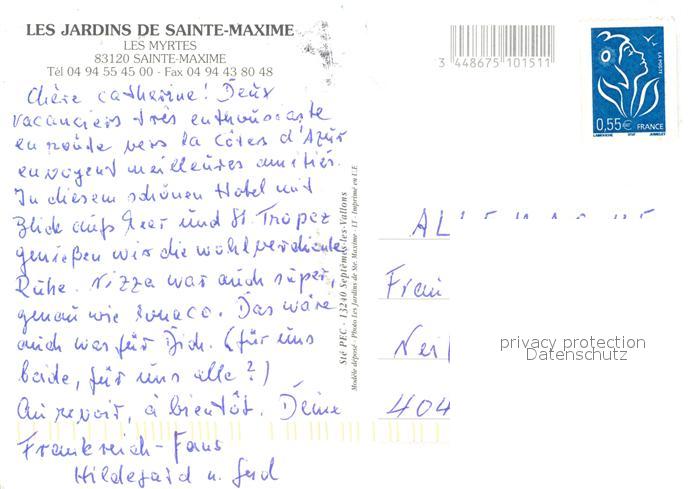 LES JARDINS DE SAINTE-MAXIME
LES MYRTES
83120 SAINTE-MAXIME
Tél 04 94 55 45 00 - Fax 04 94 43 80 48
Chère Catherine! Deux
vacanciers très enthousiaste
en route vers la Côtes d'Azur
envoyent meilleures amitiés.
In diesem schönen Hotel mit
Blick aufs Meer und St. Tropez
genießen wir die wohlverdiente
Ruhe. Nizza war auch super,
genau wie Monaco. Das wäre
auch was für Dich. (für uns
beide, für uns alle?)
Au revoir, à bientôt. Deine
Frankreich-Fans
Hildegard u. Gerd
Sté PEC - 13240 Septèmes-les-Vallons
Modèle déposé - Photo Les Jardins de Ste. Maxime - LT - Imprimé en U.E
3 448675 101511
LA POSTE
0,55€ FRANCE
ALLEMAGNE
Frau
404
privacy protection
Datenschutz